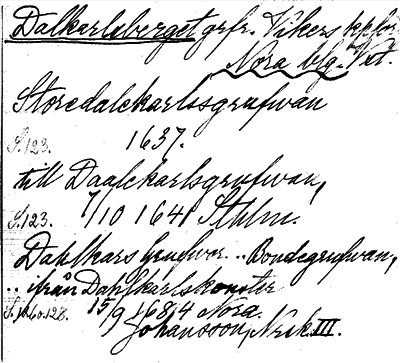 Dalkarlsberget grfr. Vikers kpfs
Nora blg. Vstl.
Storedalekarlssgrufwan
S. 123. 1637.
till Daalekarlsgrufwan,
S. 123. 7/10 1641 Sthlm.
Dahlkars Grufwor .. Bondegrufwan,
.. ifrån Dahlkarlskonster
15/9 1684 Nora.
Johansson, Norask. III.